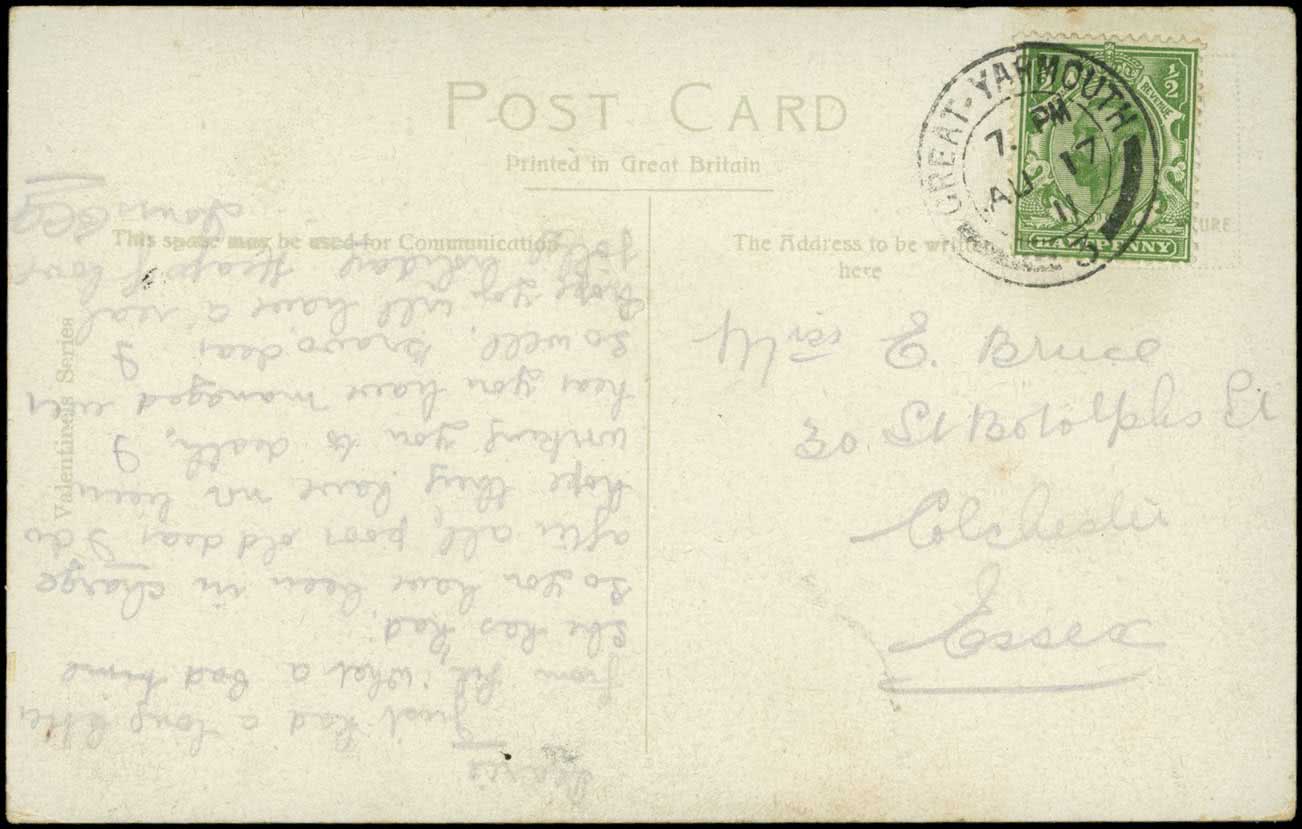 POST CARD
Printed in Great Britain
This space may be used for Communication
The Address to be written
here
Valentines Series
GREAT YARMOUTH
7. PM
AU 17
11
½
REVENUE
HALFPENNY
E. Bruce
30. St Botolphs St
Colchester
Essex
Dearie
Just had a long letter
from Lil: what a bad time
she has had.
So you have been in charge
after all, poor old dear I do
hope they have not been
working you to death, I
hear you have managed ever
so well, Bravo dear I
hope you will have a real
jolly holiday Heaps of love
Yours